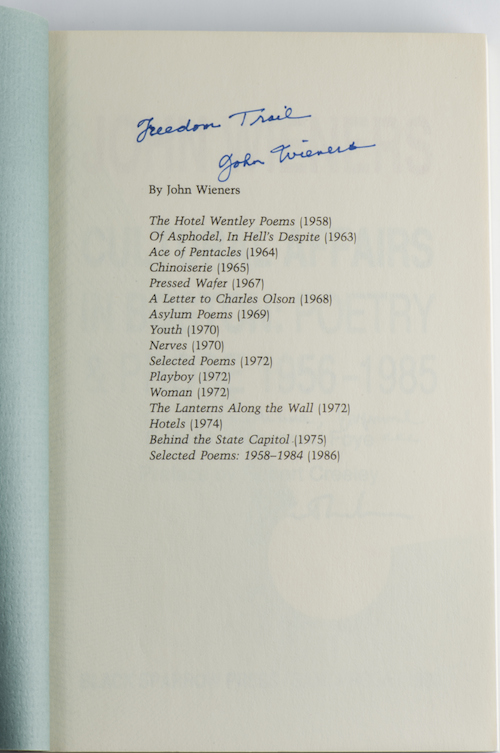 Freedom Trail
John Wieners
By John Wieners
The Hotel Wentley Poems (1958)
Of Asphodel, In Hell's Despite (1963)
Ace of Pentacles (1964)
Chinoiserie (1965)
Pressed Wafer (1967)
A Letter to Charles Olson (1968)
Asylum Poems (1969)
Youth (1970)
Nerves (1970)
Selected Poems (1972)
Playboy (1972)
Woman (1972)
The Lanterns Along the Wall (1972)
Hotels (1974)
Behind the State Capitol (1975)
Selected Poems: 1958–1984 (1986)